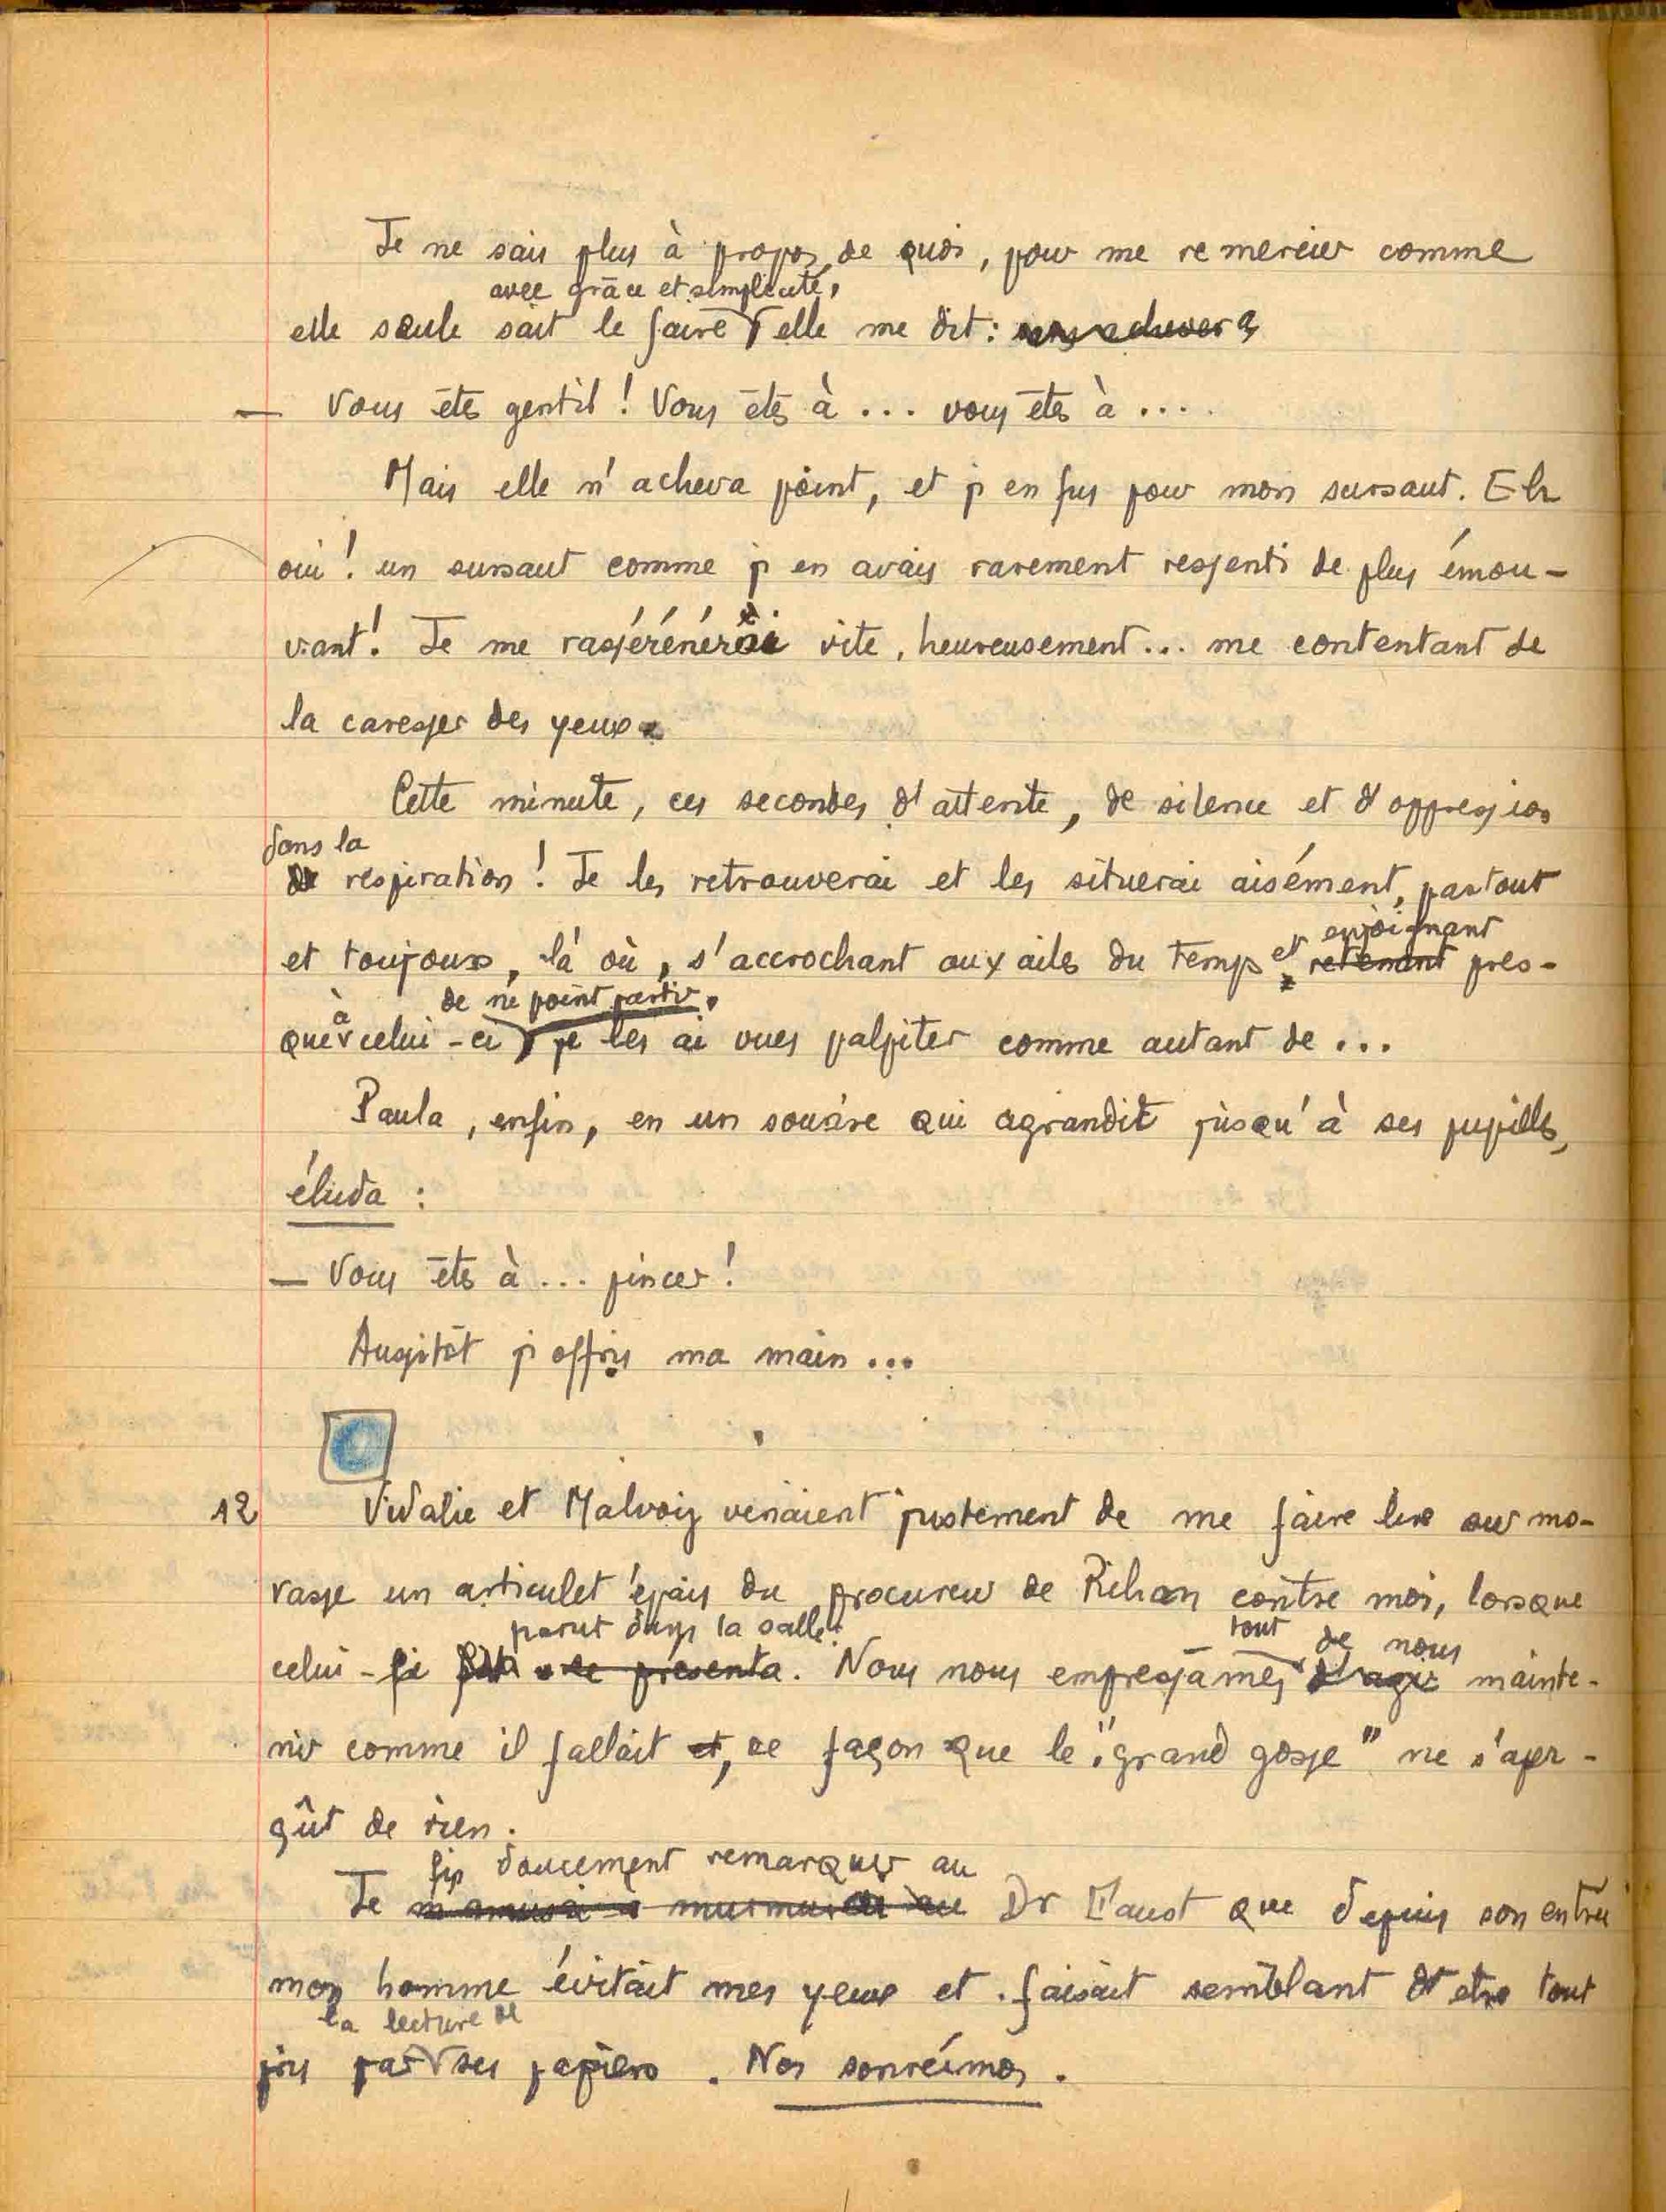 Je ne sais plus à propos de quoi, pour me remercier comme
avec grâce et simplicité,
elle seule sait le faire elle me dit :
— Vous êtes gentil ! Vous êtes à ... vous êtes à ...
Mais elle n'acheva point, et j'en fus pour mon sursaut. Eh
oui ! un sursaut comme j'en avais rarement ressenti de plus émou-
vant ! Je me rassérénérai vite, heureusement ... me contentant de
la caresser des yeux.
Cette minute, ces secondes d'attente, de silence et d'oppression
dans la
respiration ! Je les retrouverai et les situerai aisément, partout
enjoignant
et toujours, là où, s'accrochant aux ailes du Temps et retenant pres-
à de ne point partir,
que celui-ci je les ai vues palpiter comme autant de ...
Paula, enfin, en un sourire qui agrandit jusqu'à ses pupilles,
éluda :
— Vous êtes à ... pincer !
Aussitôt j'offris ma main ...
12 Vidalie et Malvoiz venaient justement de me faire lire sur mo-
rasse un articulet épais du procureur de Rihan contre moi, lorsque
parut dans la salle. tout de nous
celui-ci se présenta. Nous nous empressâmes d'agir mainte-
nir comme il fallait et, de façon que le "grand gosse" ne s'aper-
çût de rien.
fis doucement remarquer au
Je m'amusai à murmurer au Dr Faust que depuis son entrée
mon homme évitait mes yeux et faisait semblant d'être tout
la lecture de
pris par ses papiers. Nos sourîmes.